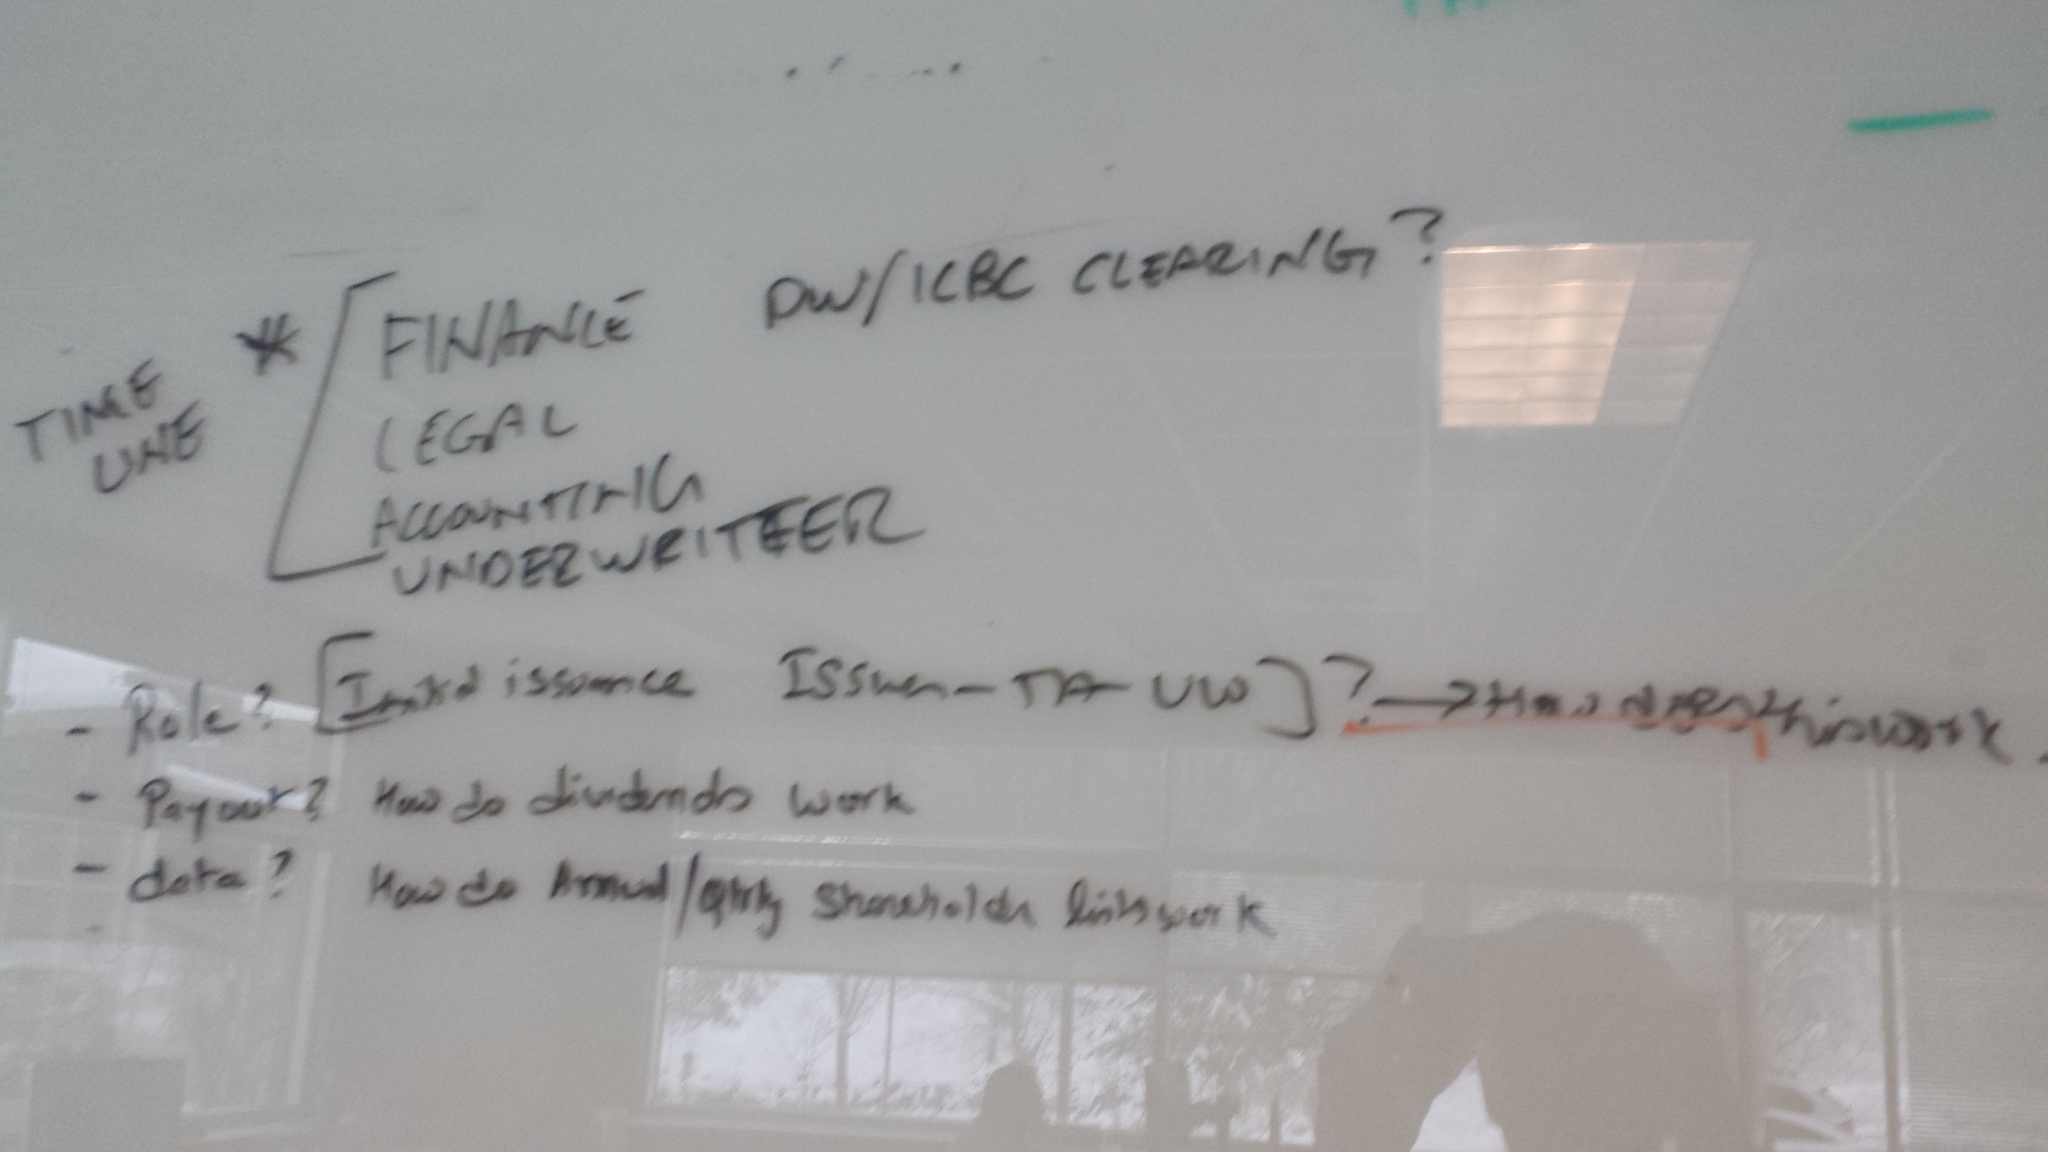 TIME
LINE
* [ FINANCE DW/ICBC CLEARING?
LEGAL
ACCOUNTING
UNDERWRITEER
- Role? [Initial issuance Issuer - TA - UW]? → How does this work.
- Payout? How do dividends work
- data? How do Annual/Qtrly Shareholder lists work